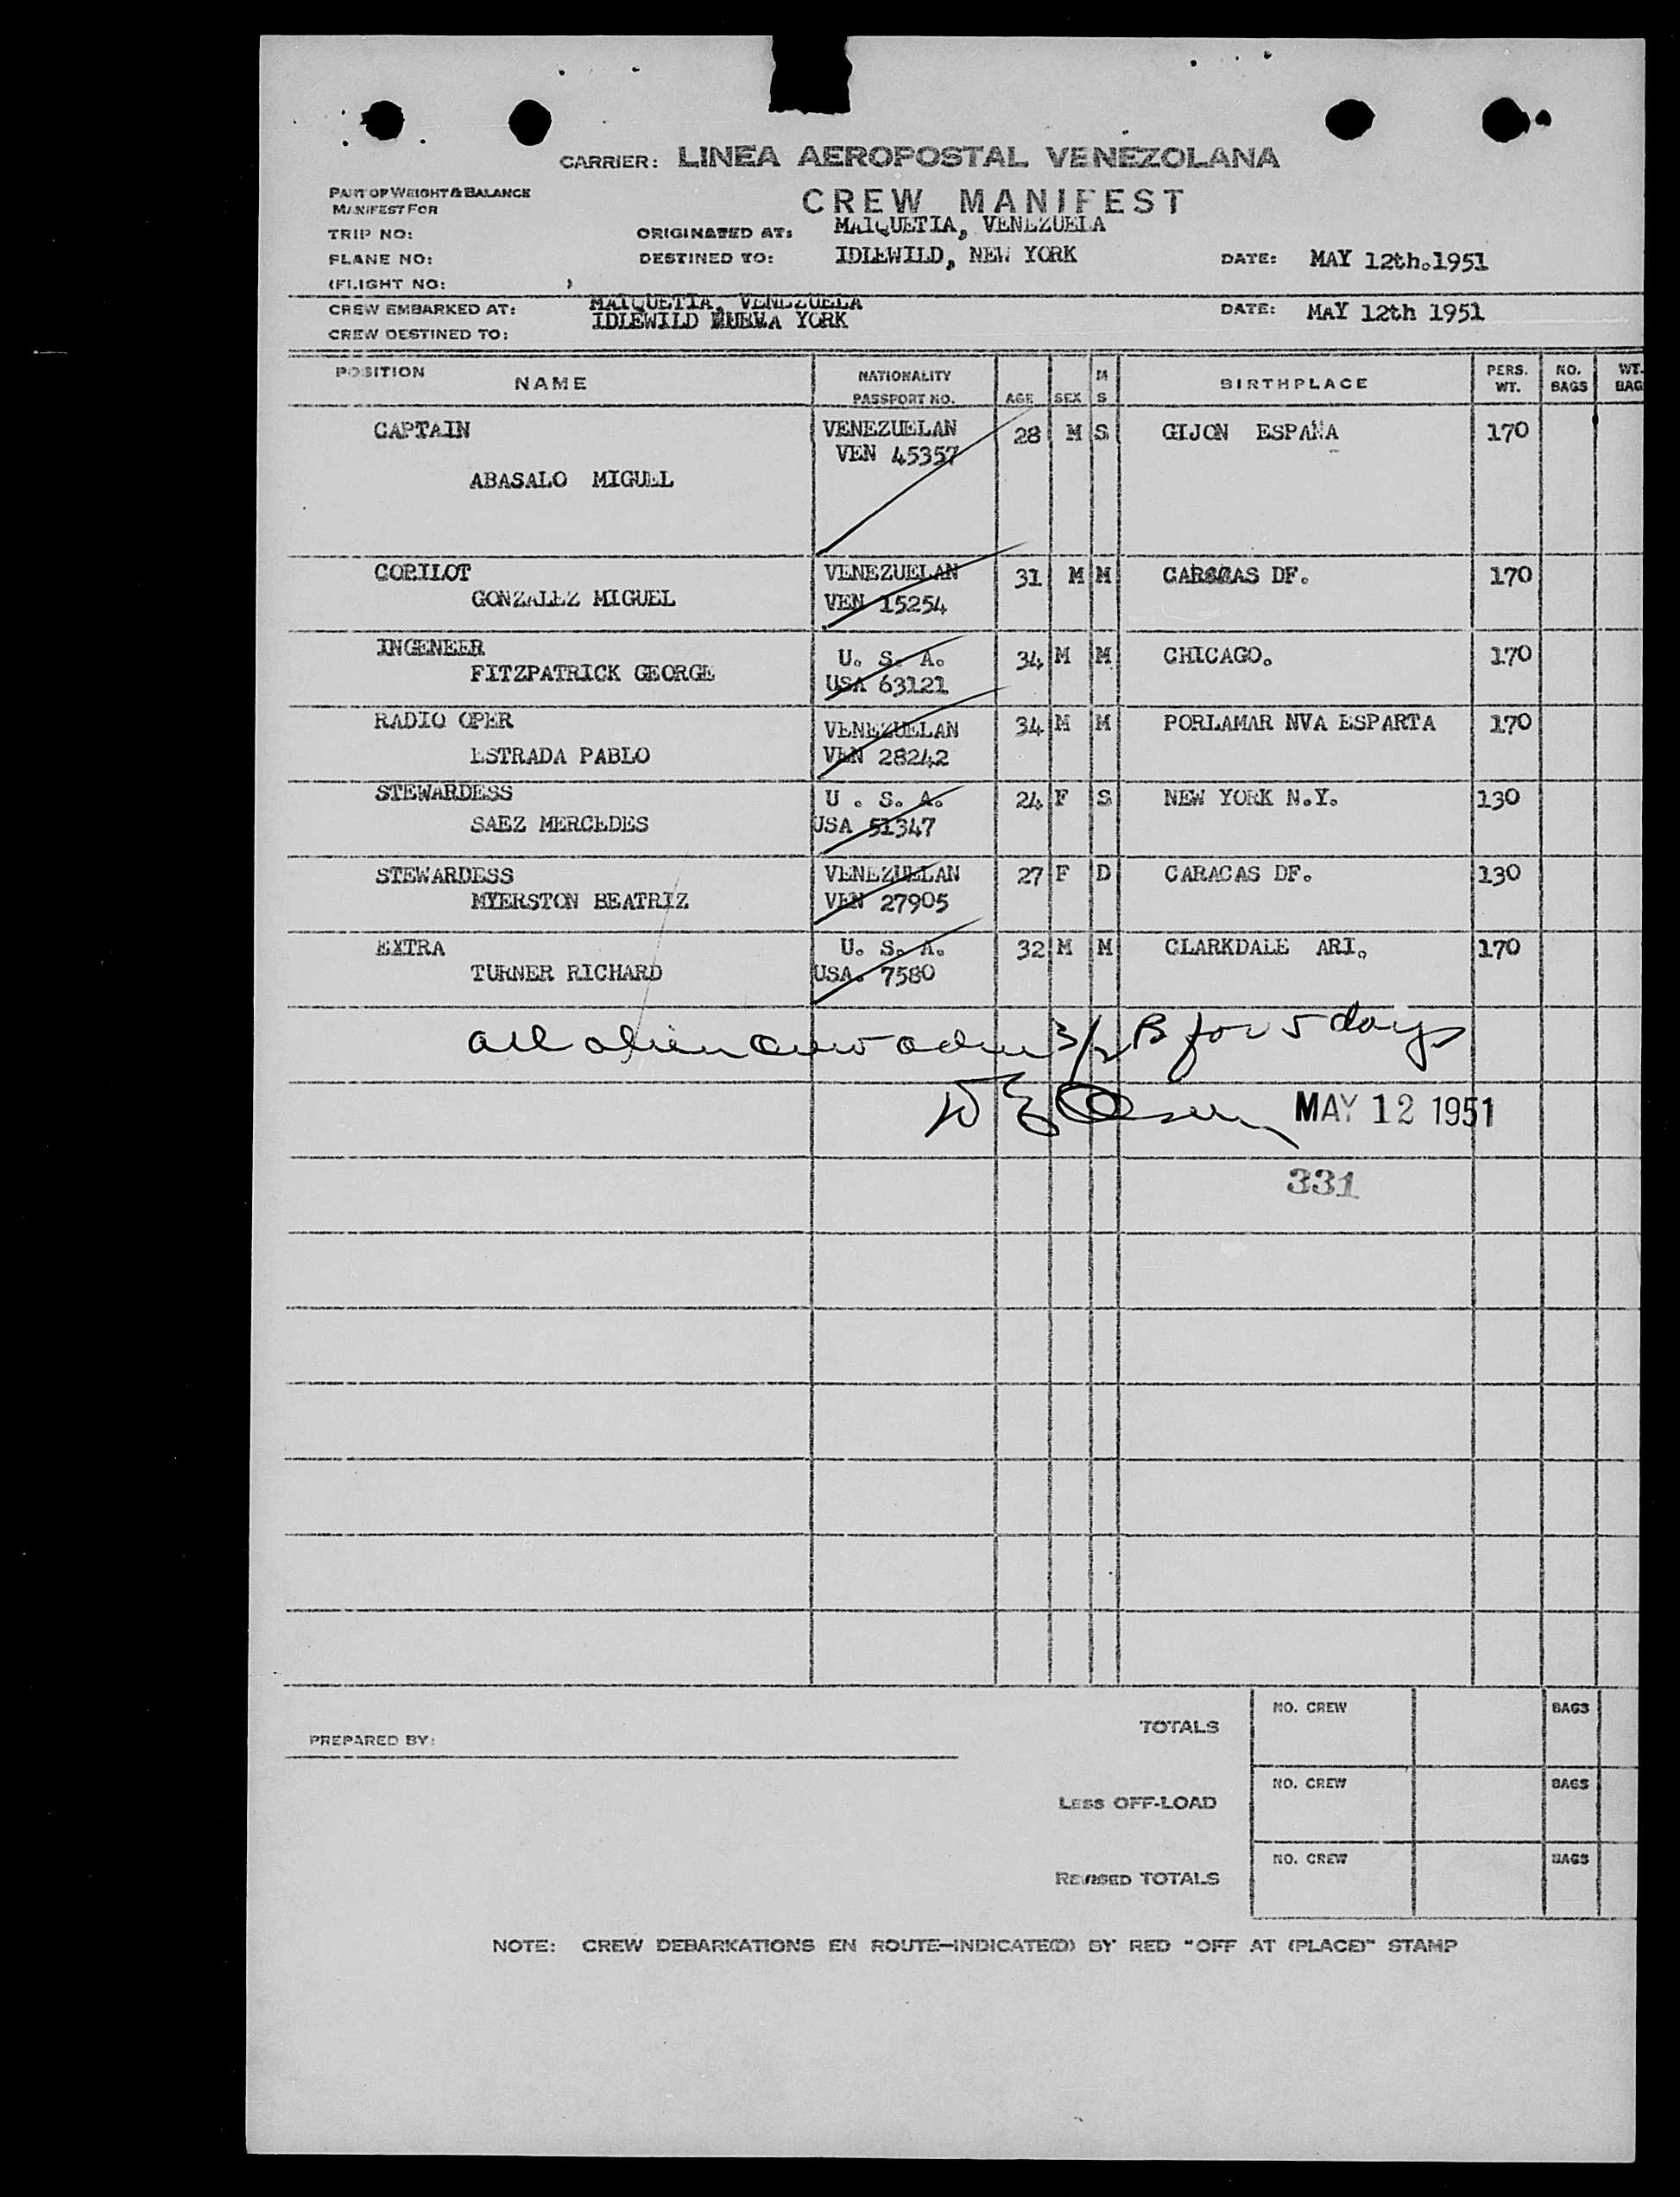 CARRIER: LINEA AEROPOSTAL VENEZOLANA
PART OF WEIGHT & BALANCE
MANIFEST FOR
CREW MANIFEST
TRIP NO: ORIGINATED AT: MAIQUETIA, VENEZUELA
PLANE NO: DESTINED TO: IDLEWILD, NEW YORK DATE: MAY 12th.1951
(FLIGHT NO: )
CREW EMBARKED AT: MAIQUETIA, VENEZUELA DATE: MAY 12th 1951
CREW DESTINED TO: IDLEWILD NUEVA YORK
POSITION NAME NATIONALITY PASSPORT NO. AGE SEX M S BIRTHPLACE PERS. WT. NO. BAGS WT. BAG
CAPTAIN VENEZUELAN 28 M S GIJON ESPAÑA 170
VEN 45357
ABASALO MIGUEL
COPILOT VENEZUELAN 31 M M CARACAS DF. 170
GONZALEZ MIGUEL VEN 15254
INGENEER U. S. A. 34 M M CHICAGO. 170
FITZPATRICK GEORGE USA 63121
RADIO OPER VENEZUELAN 34 M M PORLAMAR NVA ESPARTA 170
ESTRADA PABLO VEN 28242
STEWARDESS U . S. A. 24 F S NEW YORK N.Y. 130
SAEZ MERCEDES USA 51347
STEWARDESS VENEZUELAN 27 F D CARACAS DF. 130
MYERSTON BEATRIZ VEN 27905
EXTRA U. S. A. 32 M M CLARKDALE ARI. 170
TURNER RICHARD USA. 7580
all alien crew adm 3/2 B for 5 days
MAY 12 1951
331
PREPARED BY:
TOTALS NO. CREW BAGS
LESS OFF-LOAD NO. CREW BAGS
REVISED TOTALS NO. CREW BAGS
NOTE: CREW DEBARKATIONS EN ROUTE—INDICATE(D) BY RED "OFF AT (PLACE)" STAMP